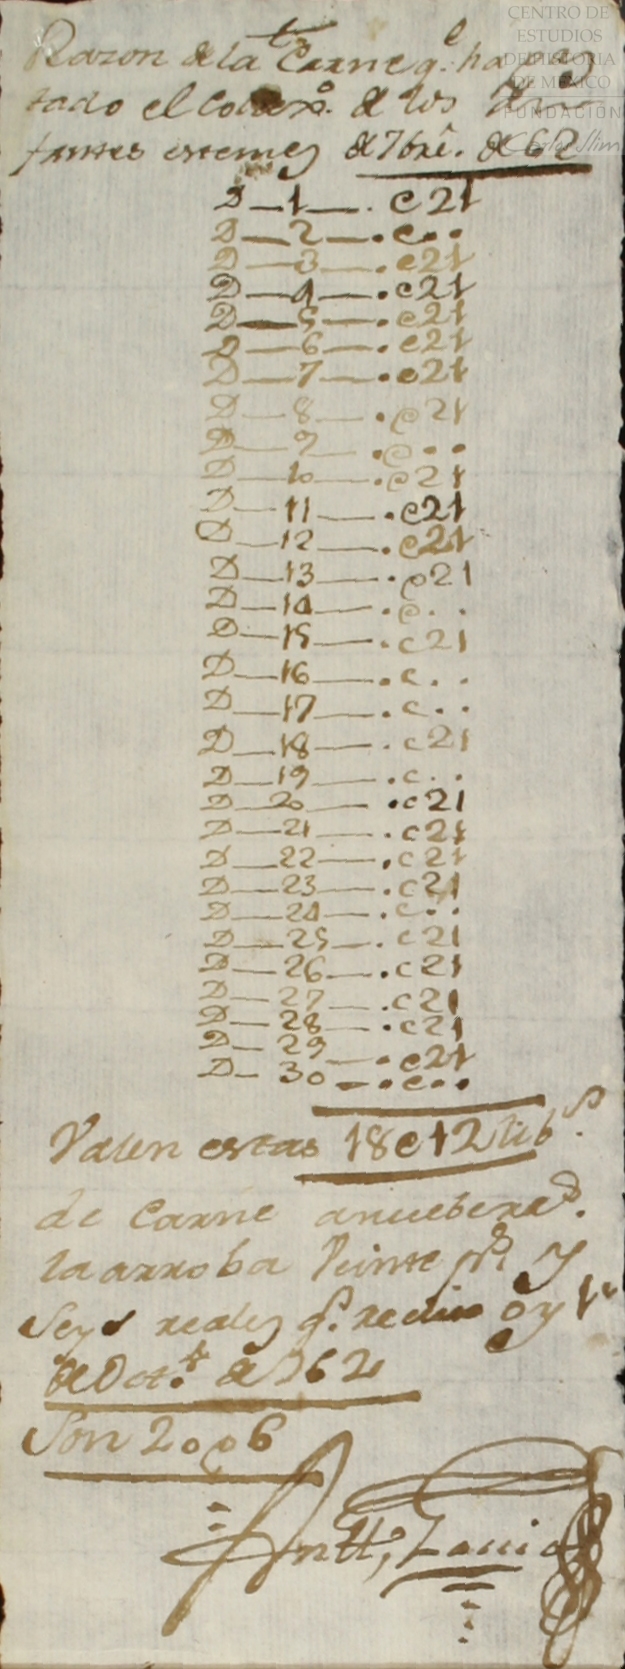 CENTRO DE
ESTUDIOS
DE HISTORIA
DE MÉXICO
FUNDACIÓN
Carlos Slim
Razon de la Carne q.e ha
tado el de los
fantes este mes de 7bre. de 62
D 1 . @ 21
D 2 . @ . .
D 3 . @ 21
D 4 . @ 21
D 5 . @ 21
D 6 . @ 21
D 7 . @ 21
D 8 . @ 21
D 9 . @ . .
D 10 . @ 21
D 11 . @ 21
D 12 . @ 21
D 13 . @ 21
D 14 . @ . .
D 15 . @ 21
D 16 . @ . .
D 17 . @ . .
D 18 . @ 21
D 19 . @ . .
D 20 . @ 21
D 21 . @ 21
D 22 . @ 21
D 23 . @ 21
D 24 . @ . .
D 25 . @ 21
D 26 . @ 21
D 27 . @ 21
D 28 . @ 21
D 29 . @ 21
D 30 . @ . .
Valen estas 18 @ 12 lib.s
de Carne a nuebe
la arroba Veinte ps. y
Seys reales q.e oy 1o
de Oct.e de 762
Son 20 p 6
Antto,